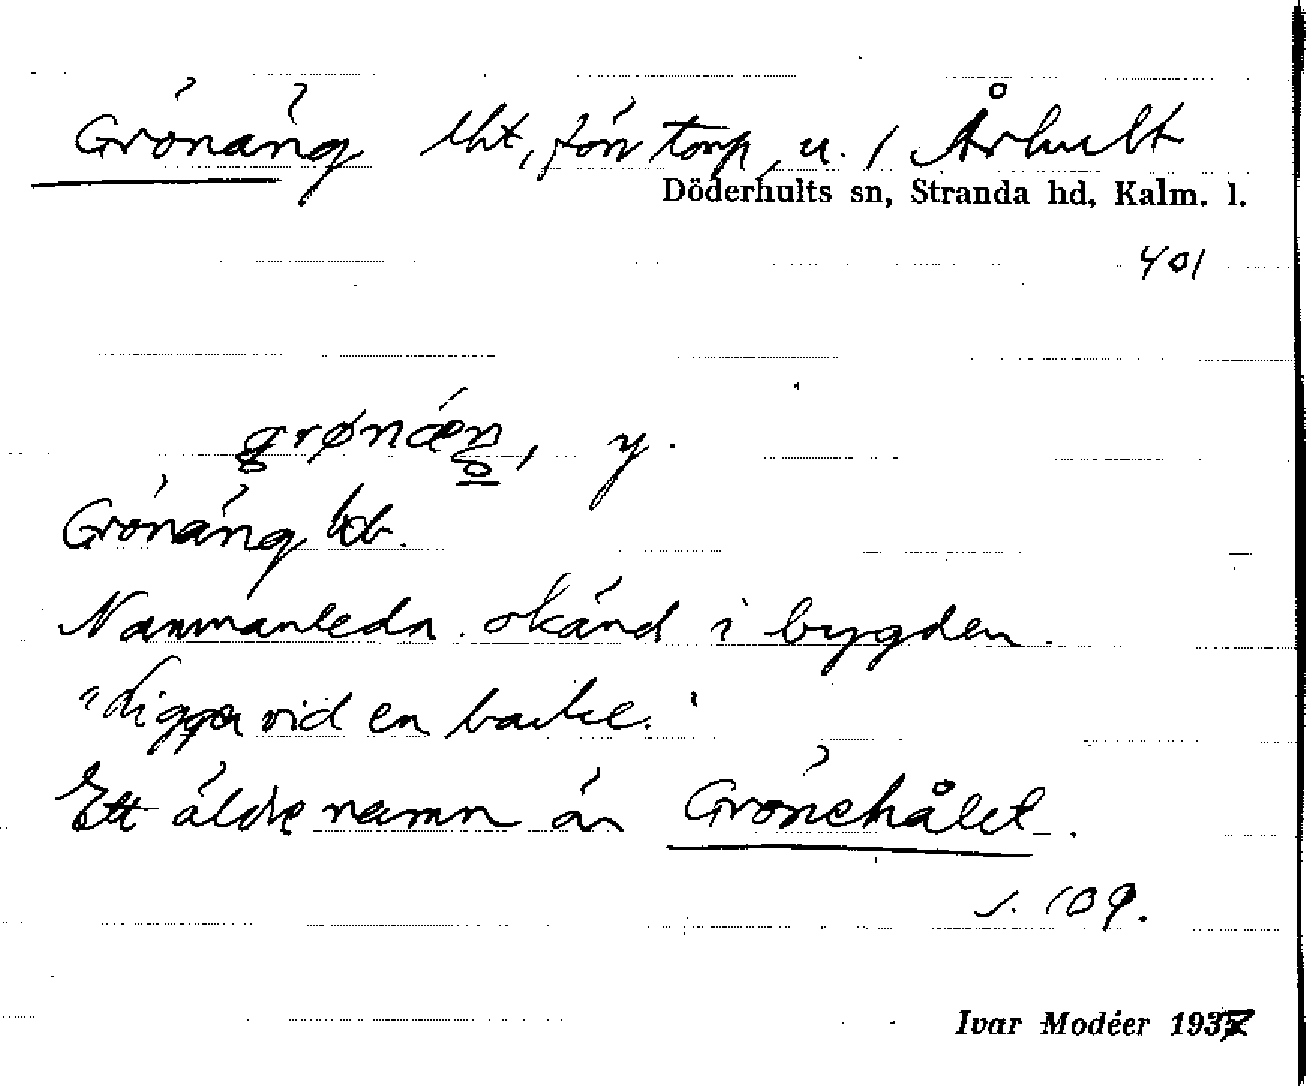 Grönäng lht, förr torp, u. / Århult
Döderhults sn, Stranda hd, Kalm. l.
401
grønǽŋ, y.
Grönäng
Namnanledn. okänd i bygden.
"Ligger vid en backe."
Ett äldre namn är Grönehålet.
s. 109.
Ivar Modéer 1937